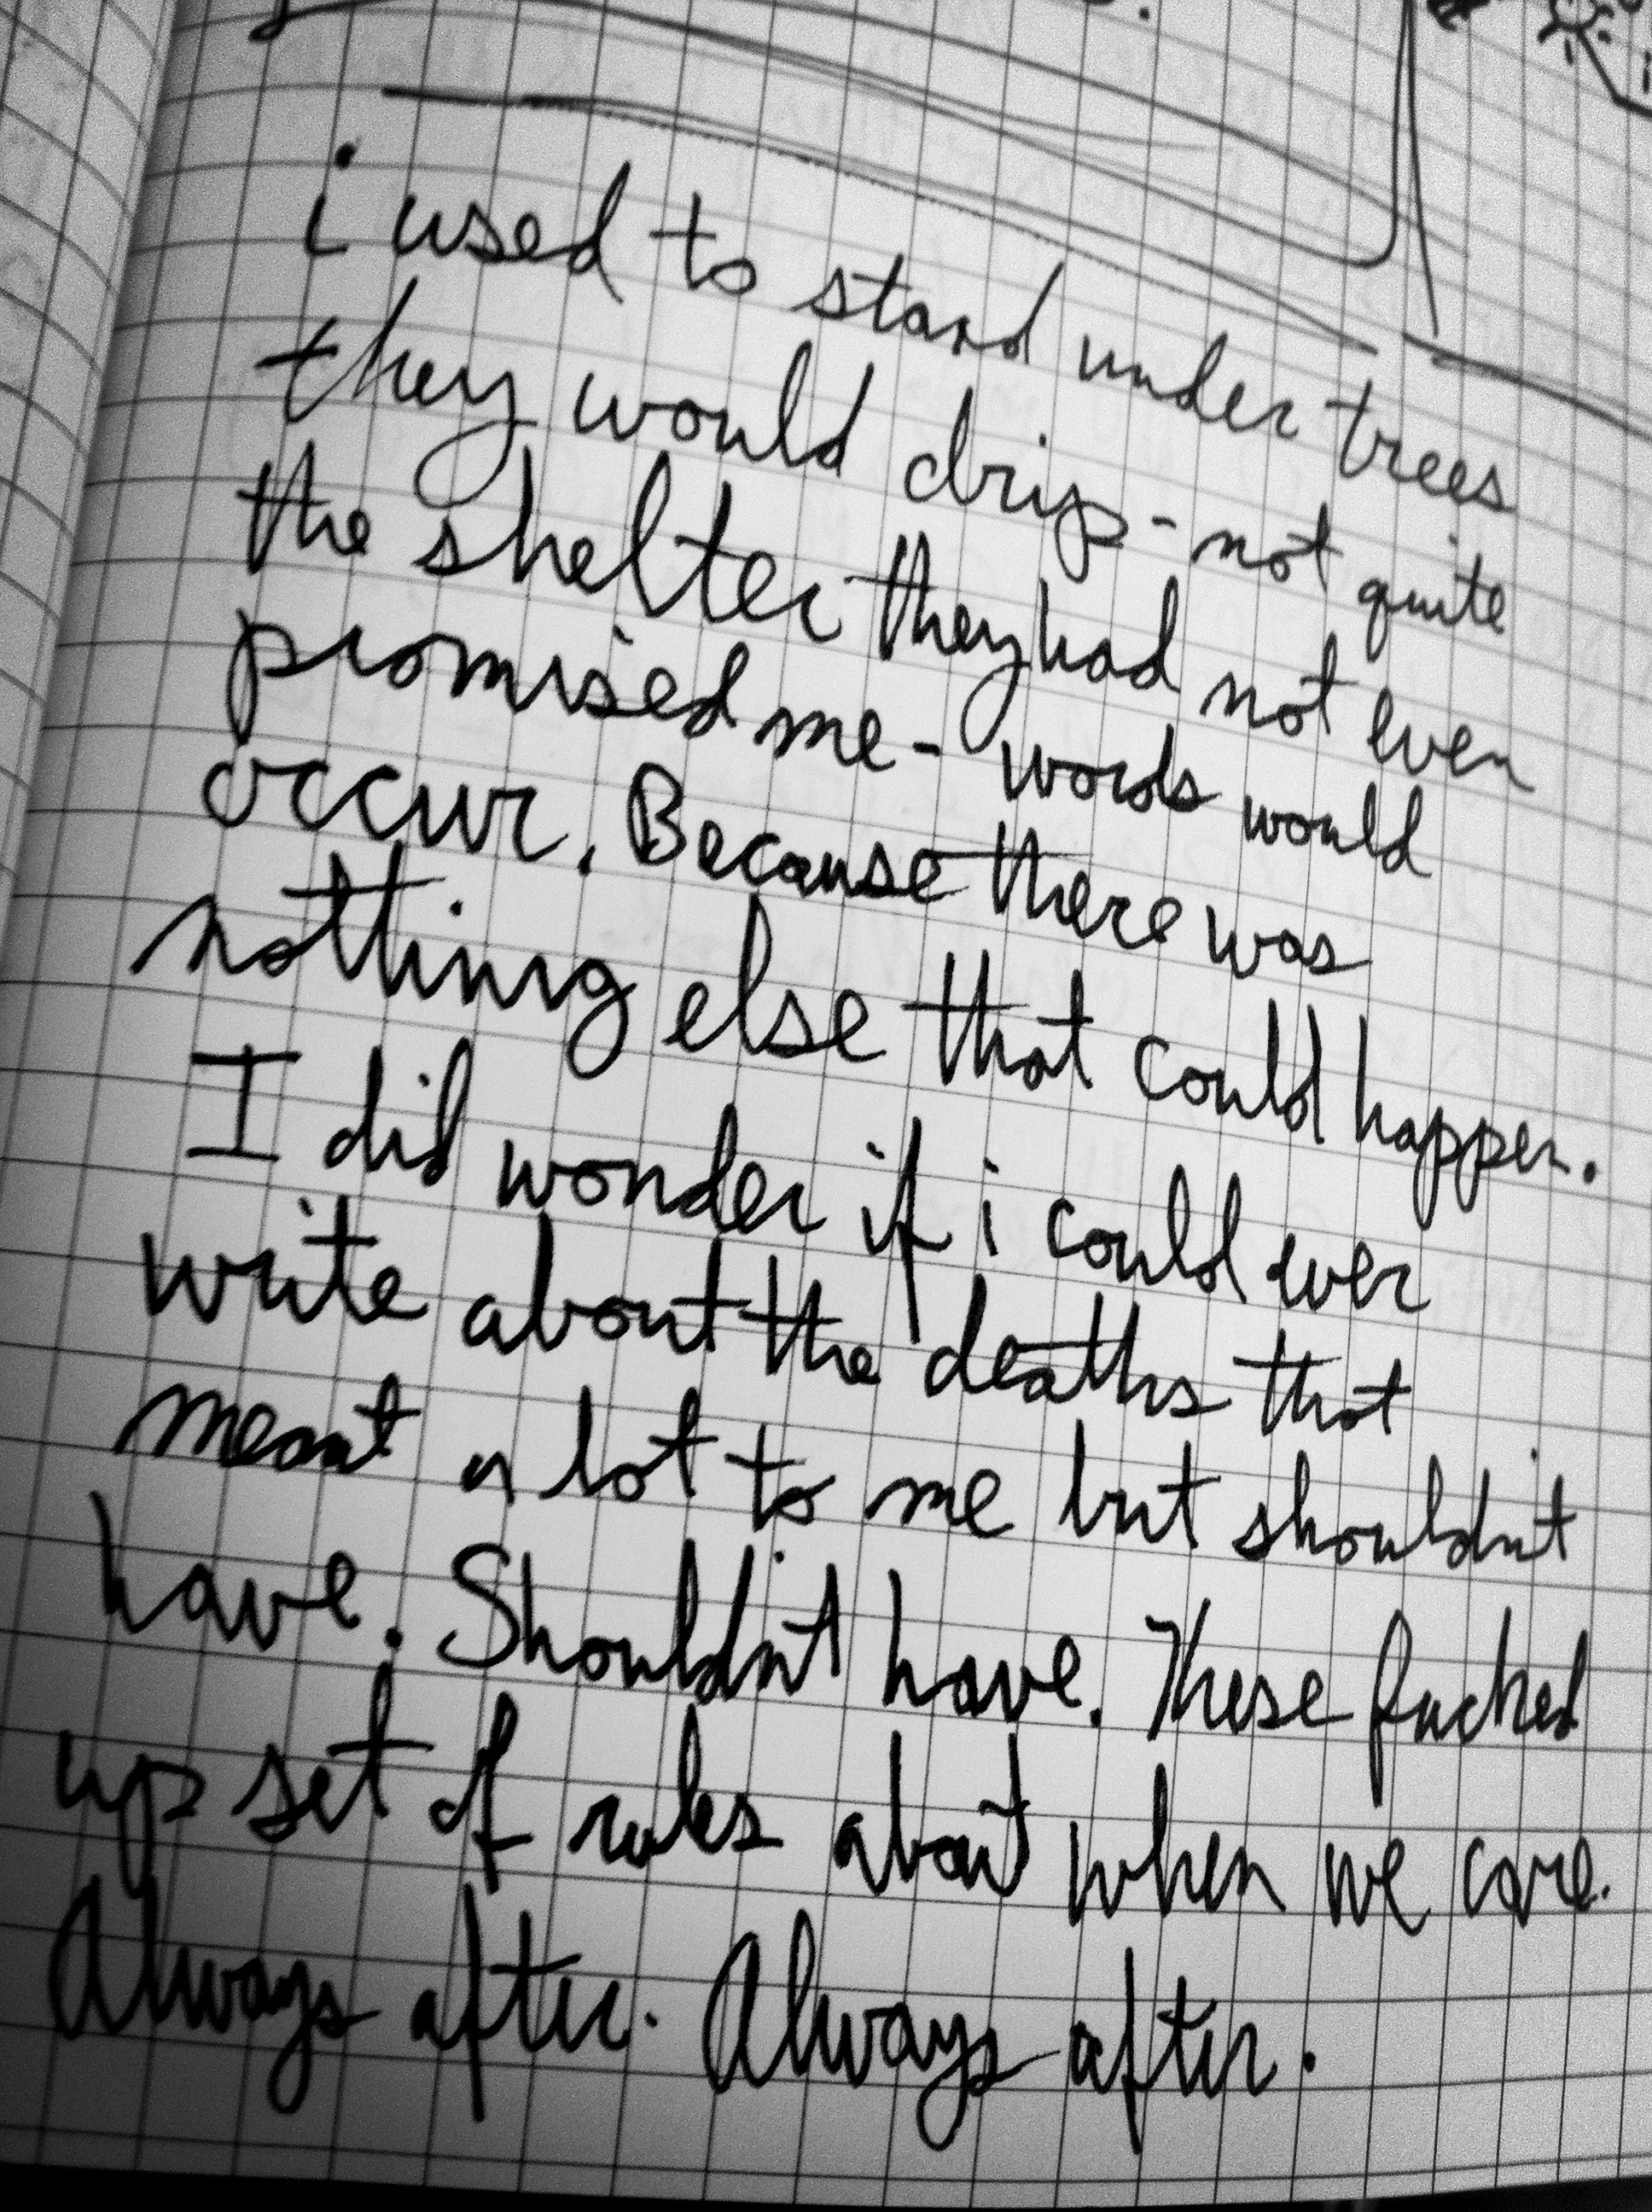 i used to stand under trees
they would drip - not quite
the shelter they had not even
promised me - words would
occur. Because there was
nothing else that could happen.
I did wonder if i could ever
write about the deaths that
meant a lot to me but shouldn't
have. Shouldn't have. These fucked
up set of rules about when we care.
Always after. Always after.